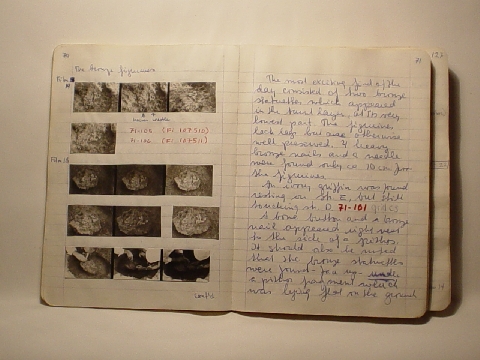 70
The bronze figurines
Film
71-105 (F1.107:510)
71-106 (F1.107:511)
Film 15
71
The most exciting find of the
day consisted of two bronze
statuettes which appeared
in the burnt layer, at its very
lowest part. The figurines
lack legs but are otherwise
well preserved. 4 heavy
bronze nails and a needle
were found only ca 10 cm from
the figurines.
An ivory griffin was found
resting on st. E, but still
touching st. D 71-101
A bone button and a bronze
nail appeared right next
to the side of a pithos.
It should also be noted
that the bronze statuettes
were found
a pithos fragment which
was lying flat on the ground